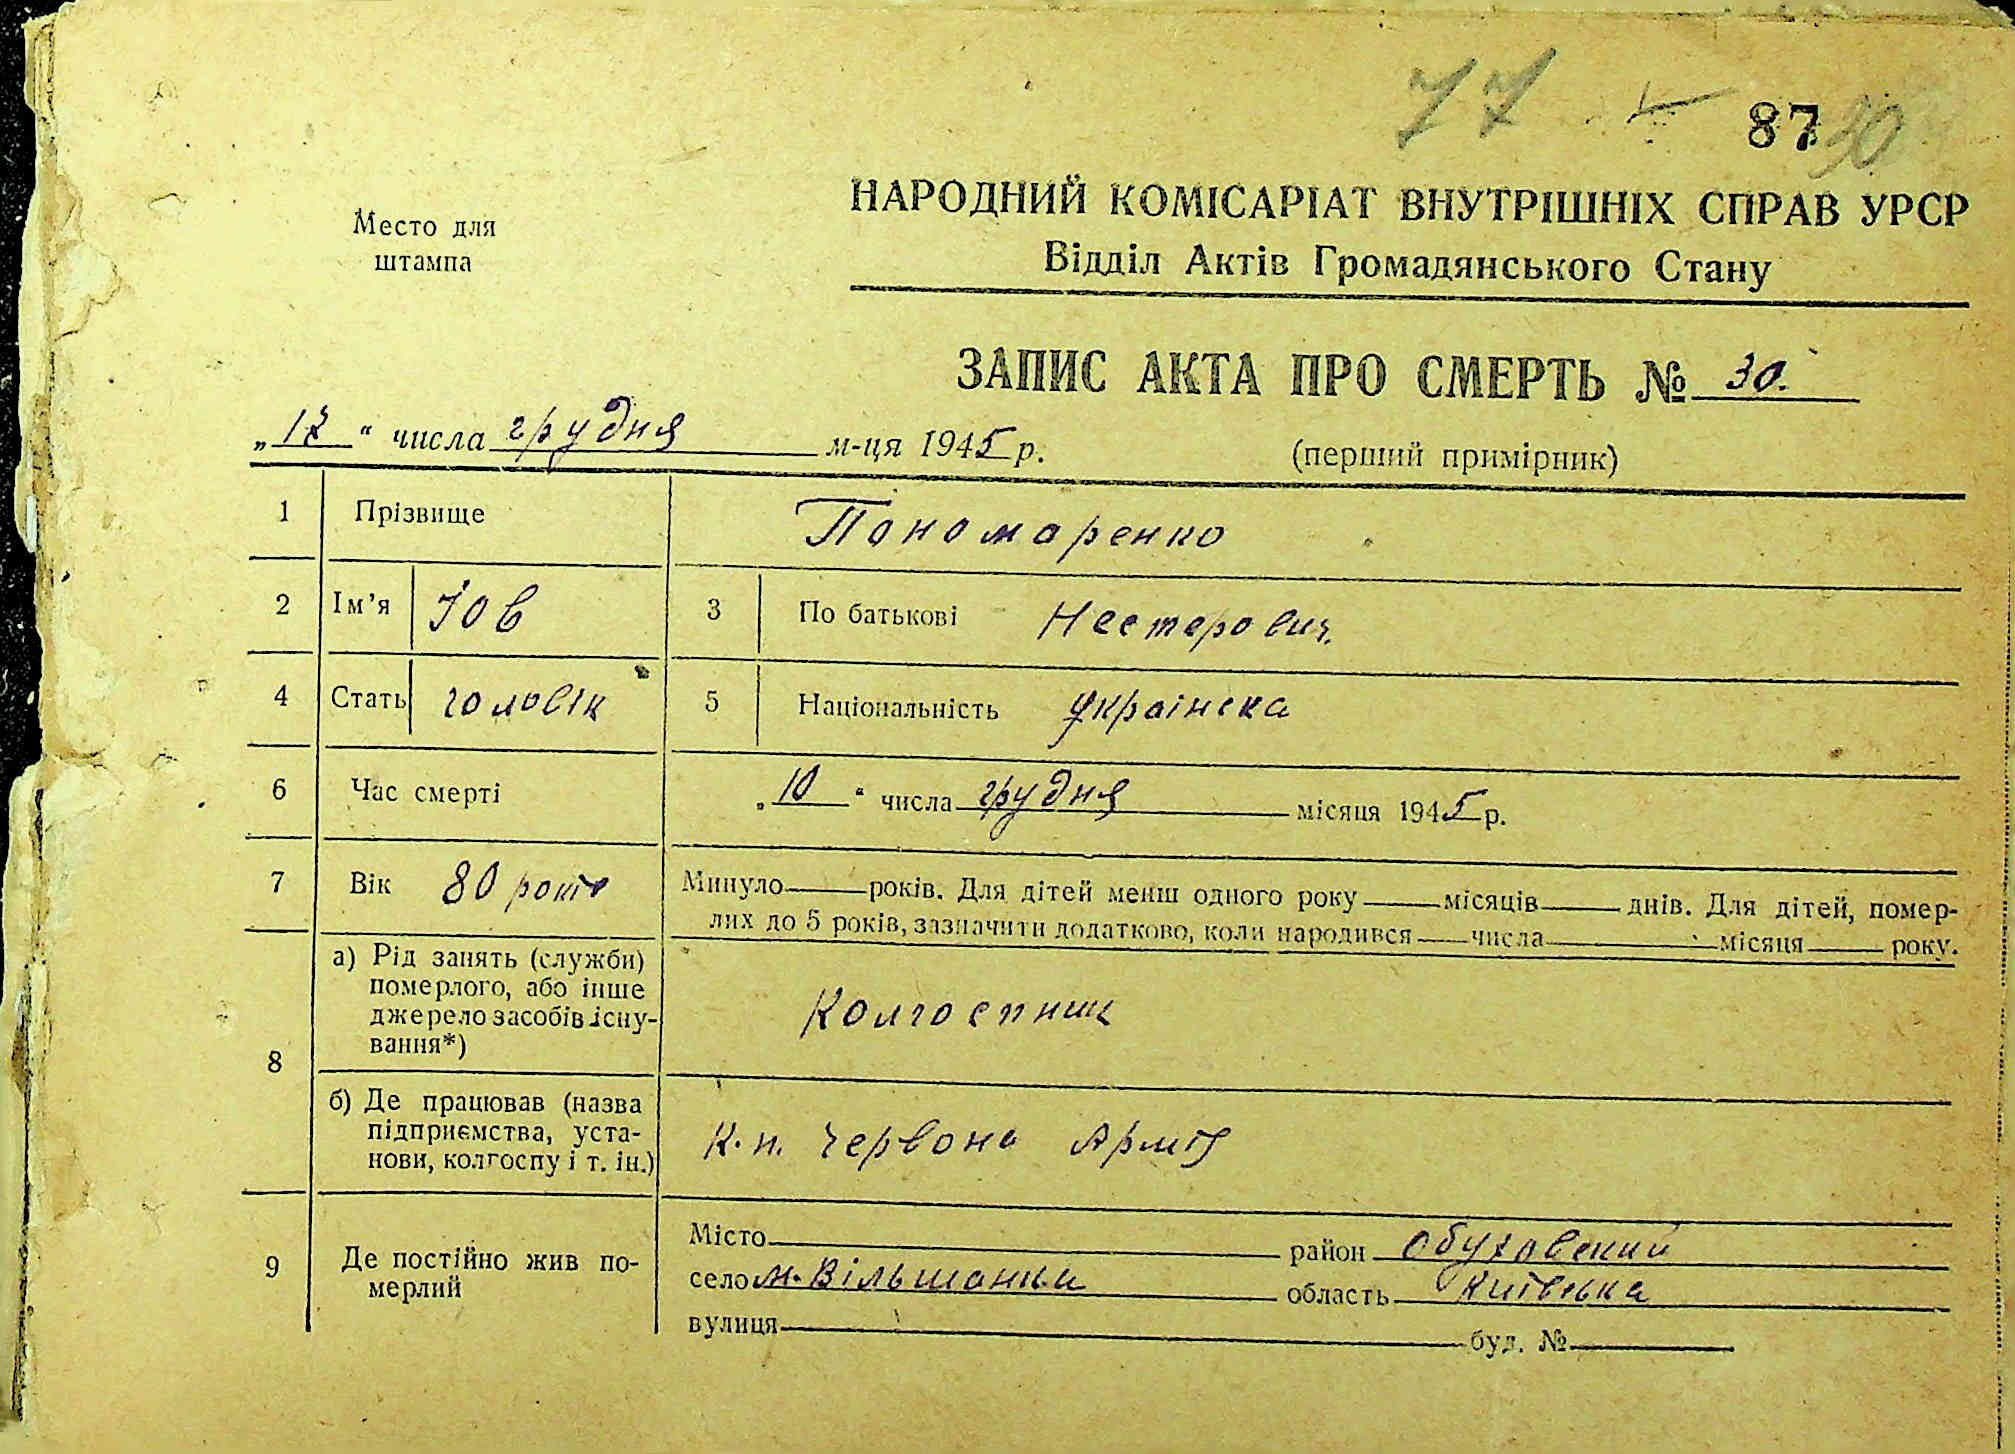 77 87 90
Место для
штампа
НАРОДНИЙ КОМІСАРІАТ ВНУТРІШНІХ СПРАВ УРСР
Відділ Актів Громадянського Стану
ЗАПИС АКТА ПРО СМЕРТЬ № 30.
„12“ числа грудня м-ця 1945 р.
(перший примірник)
1 Прізвище Пономаренко
2 Ім’я Іов 3 По батькові Нестерович.
4 Стать чоловік 5 Національність українска
6 Час смерті „10“ числа грудня місяця 1945 р.
7 Вік 80 років Минуло років. Для дітей менш одного року місяців днів. Для дітей, помер-
лих до 5 років, зазначити додатково, коли народився числа місяця року.
8 а) Рід занять (служби)
померлого, або інше
джерело засобів існу-
вання*)
Колгоспник
б) Де працював (назва
підприємства, уста-
нови, колгоспу і т. ін.)
к.п. Червона Армія
9 Де постійно жив по-
мерлий
Місто район Обуховский
село м. Вільшанка область Київська
вулиця буд. №